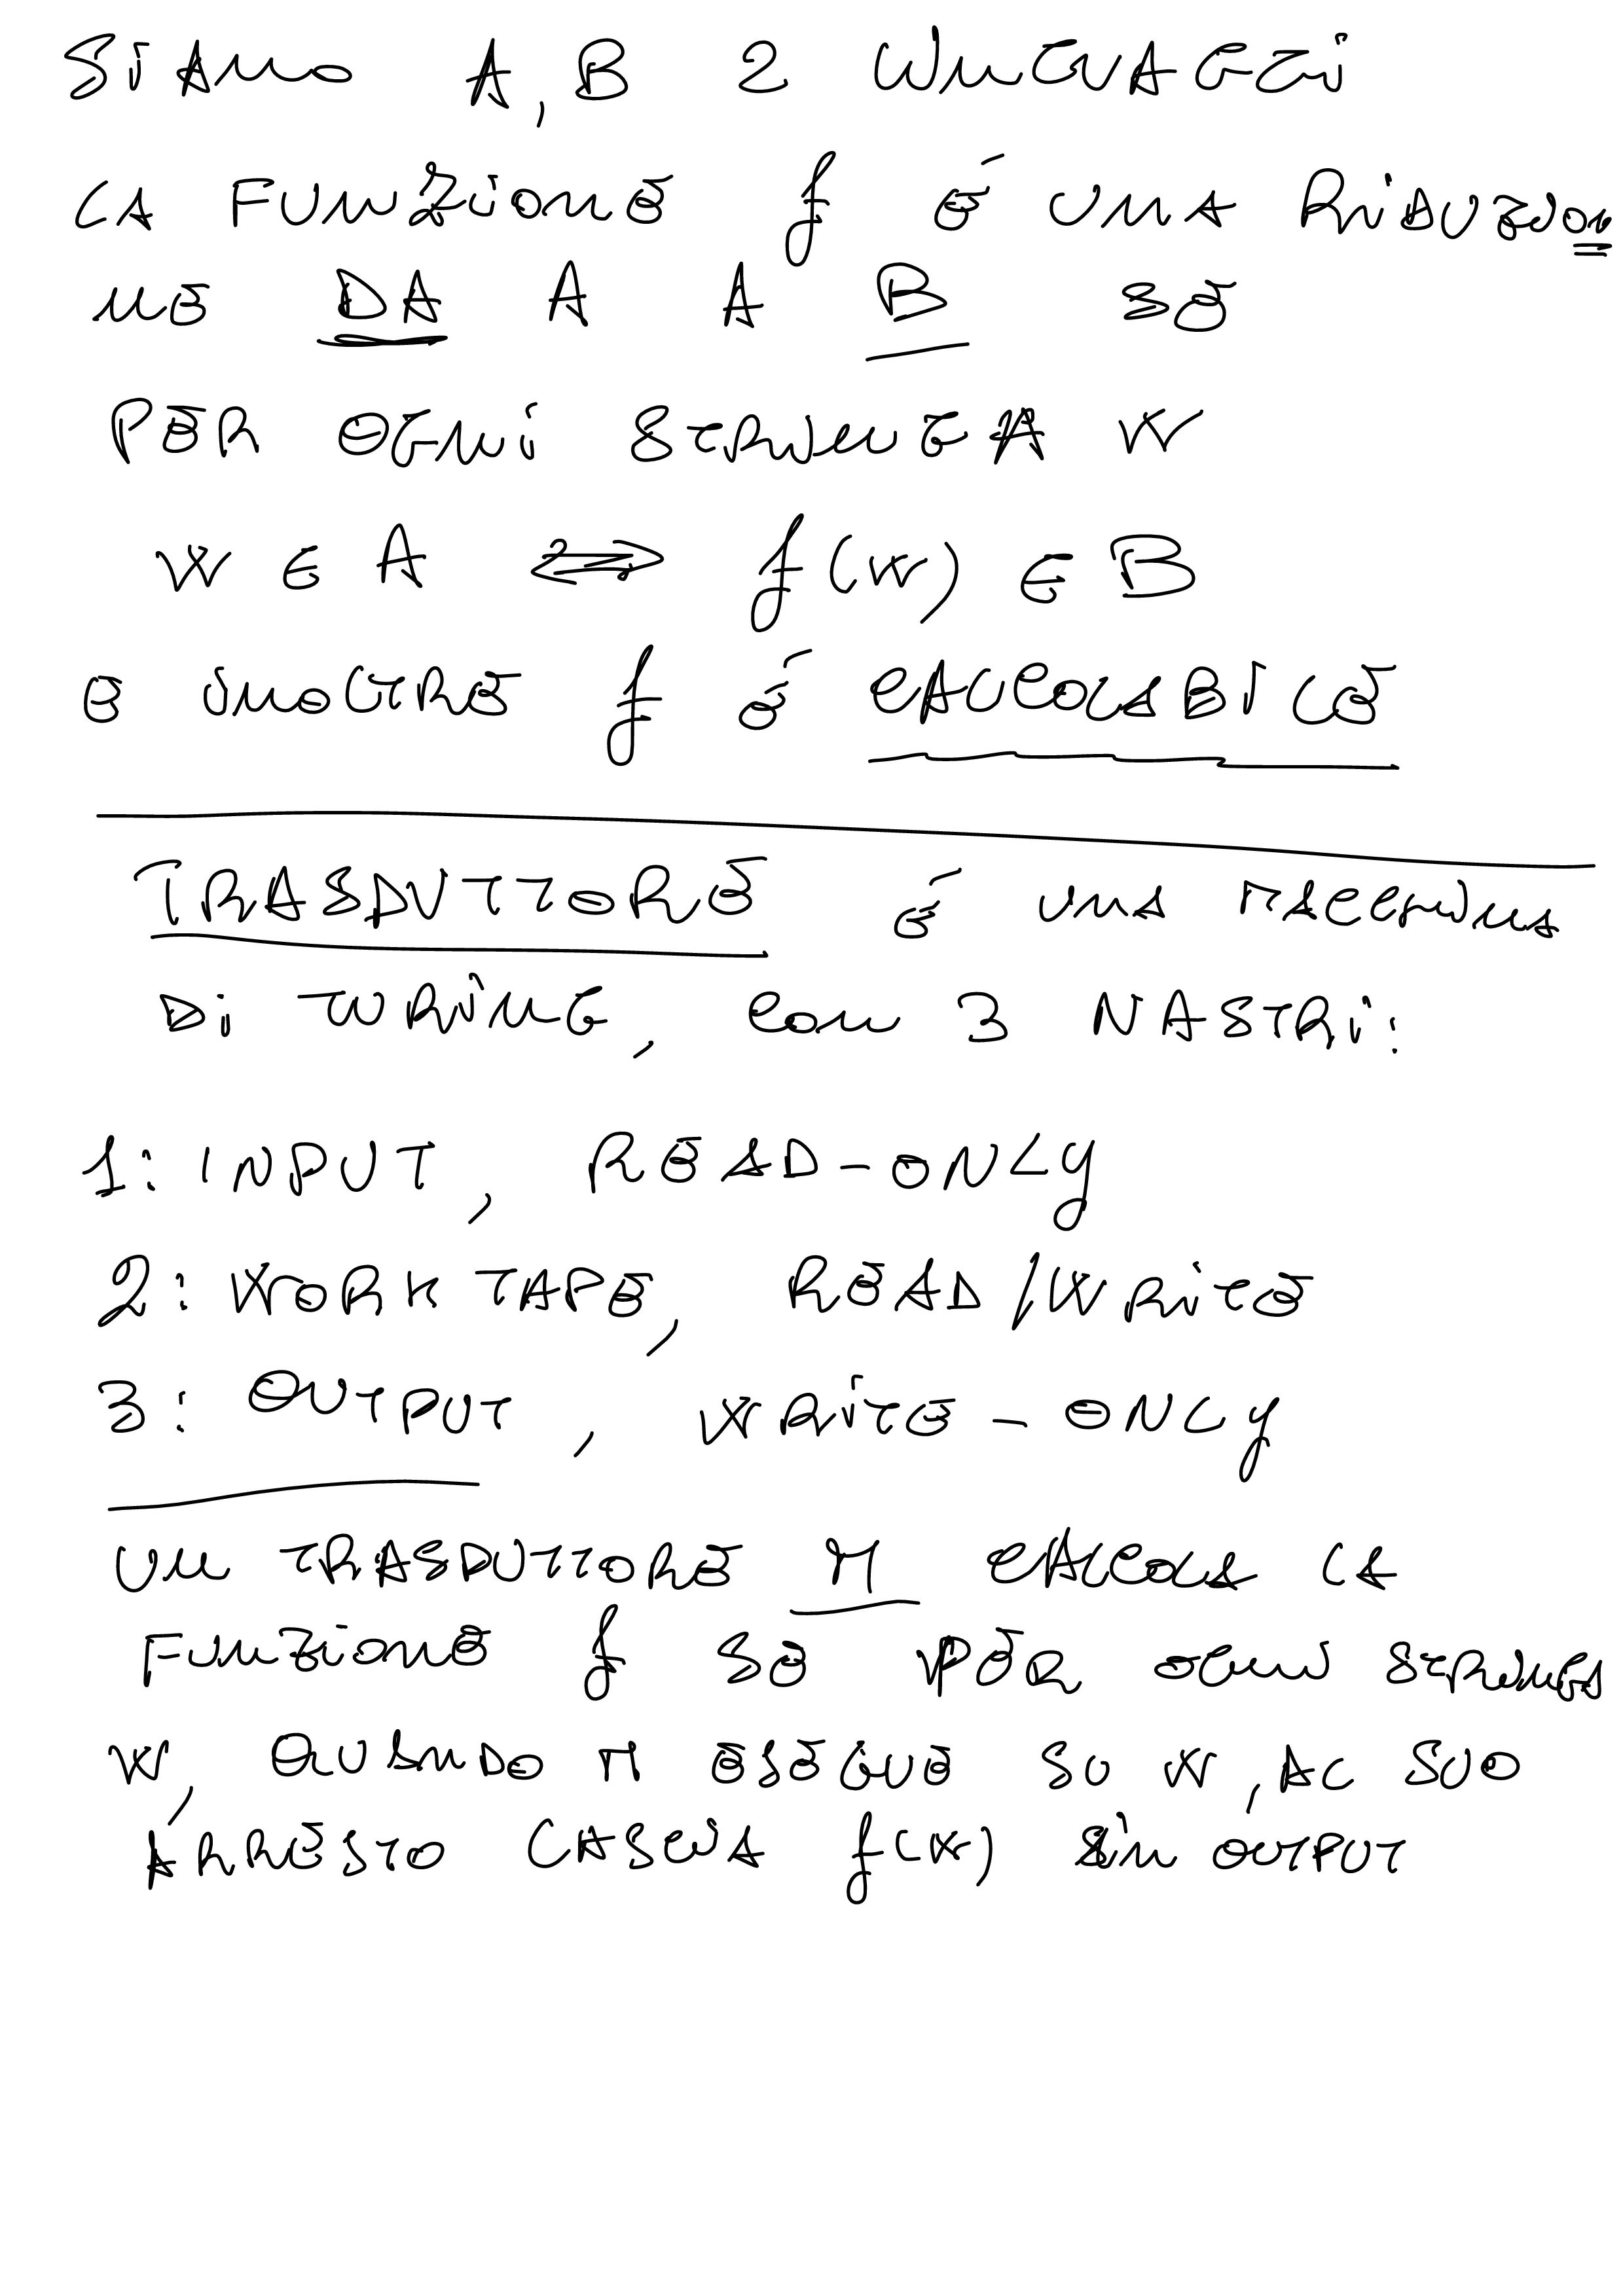 SIANO A, B 2 LINGUAGGI
LA FUNZIONE f É UNA RIDUZION
NE DA A A B SE
PER OGNI STRINGA W
W ∈ A ⟺ f(W) ∈ B
E INOLTRE f É CALCOLABILE
TRASDUTTORE É UNA MACCHINA
DI TURING, CON 3 NASTRI:
1: INPUT, READ-ONLY
2: WORK TAPE, READ/WRITE
3: OUTPUT, WRITE-ONLY
UN TRASDUTTORE M CALCOLA LA
FUNZIONE f SE PER OGNI STRINGA
W, QUANDO M ESEGUE SU W, AL SUO
ARRESTO LASCIA f(W) IN OUTPUT